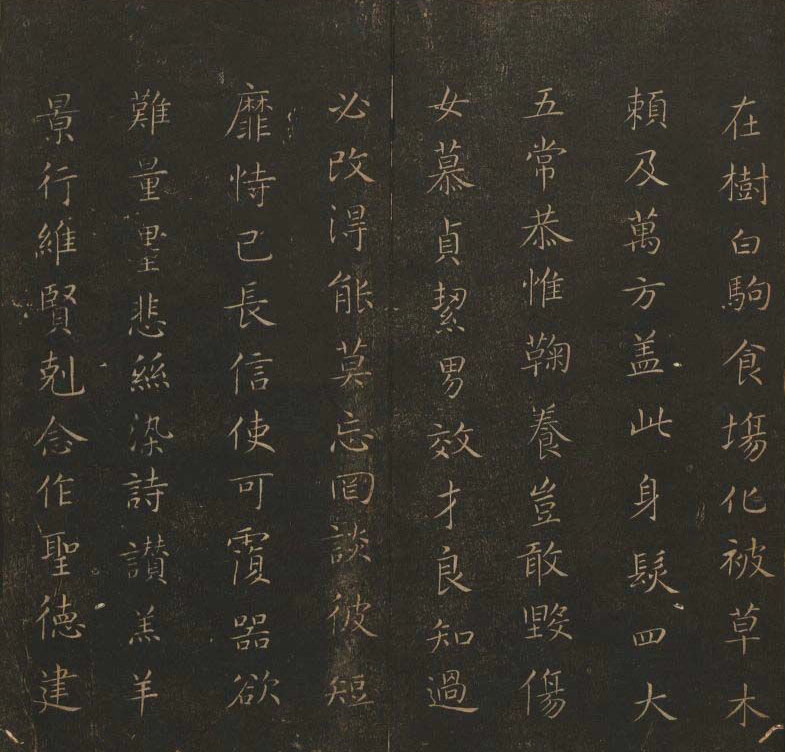 在樹白駒食場化被草木
頼及萬方盖此身髮四大
五常恭惟鞠養豈敢毀傷
女慕貞絜男效才良知過
必改得能莫忘罔談彼短
靡恃己長信使可覆器欲
難量墨悲絲染詩讃羔羊
景行維賢剋念作聖德建